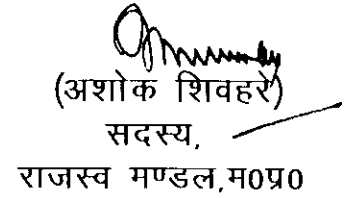 (अशोक शिवहरे)
सदस्य,
राजस्व मण्डल,म0प्र0